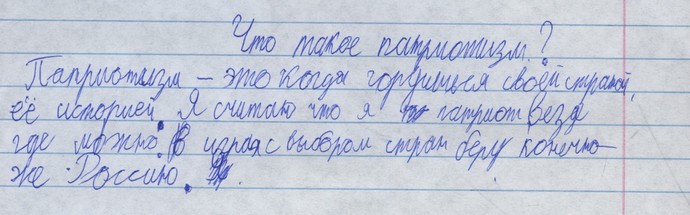 Что такое патриотизм?
Патриотизм – это когда гордишься своей страной,
её историей. Я считаю что я патриот везде
где можно. В играх с выбором стран беру конечно
же Россию.